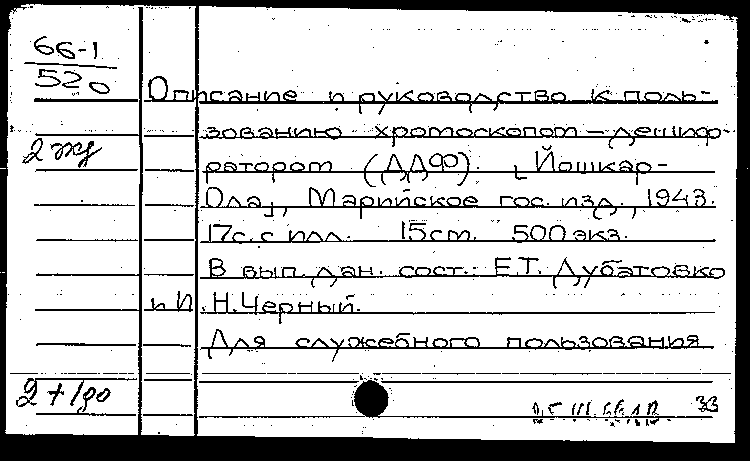 66-1
520
Описание и руководство к поль-
зованию хромоскопом-дешиф-
2 экз
ратором (ДДФ). [Йошкар-
Ола], Марийское гос. изд., 1943.
17с. с илл. 15см. 500 экз.
В вып. дан. сост.: Е.Т. Дубатовко
и И.Н. Черный.
Для служебного пользования
33